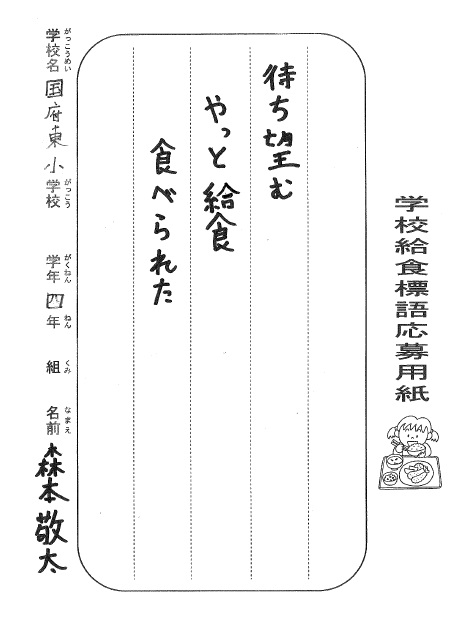 学校給食標語応募用紙
待ち望む
やっと給食
食べられた
学校名 国府東小学校 学年 四年 組 名前 森本敬太
がっこうめい がっこう がくねん ねん くみ なまえ